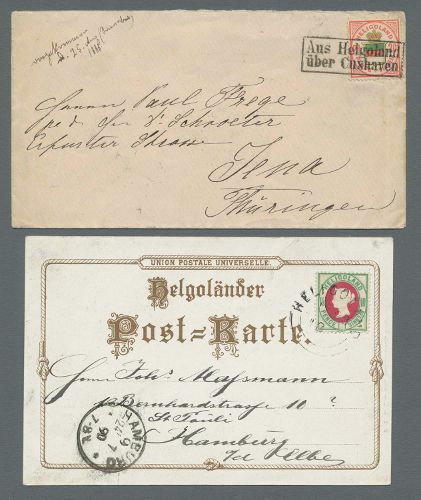 angekommen
d. 25.
1888
HELIGOLAND
Aus Helgoland
über Cuxhaven
Herrn Paul Frege
Erfurter Strasse
Jena
Thüringen
UNION POSTALE UNIVERSELLE.
Helgoländer
Post=Karte.
HELIGOLAND
HEL
Herrn Joh. Massmann
Bernhardstrasse 10
St Pauli
Hamburg
a/d Elbe
HAMBURG
24/7
90
7-8V.